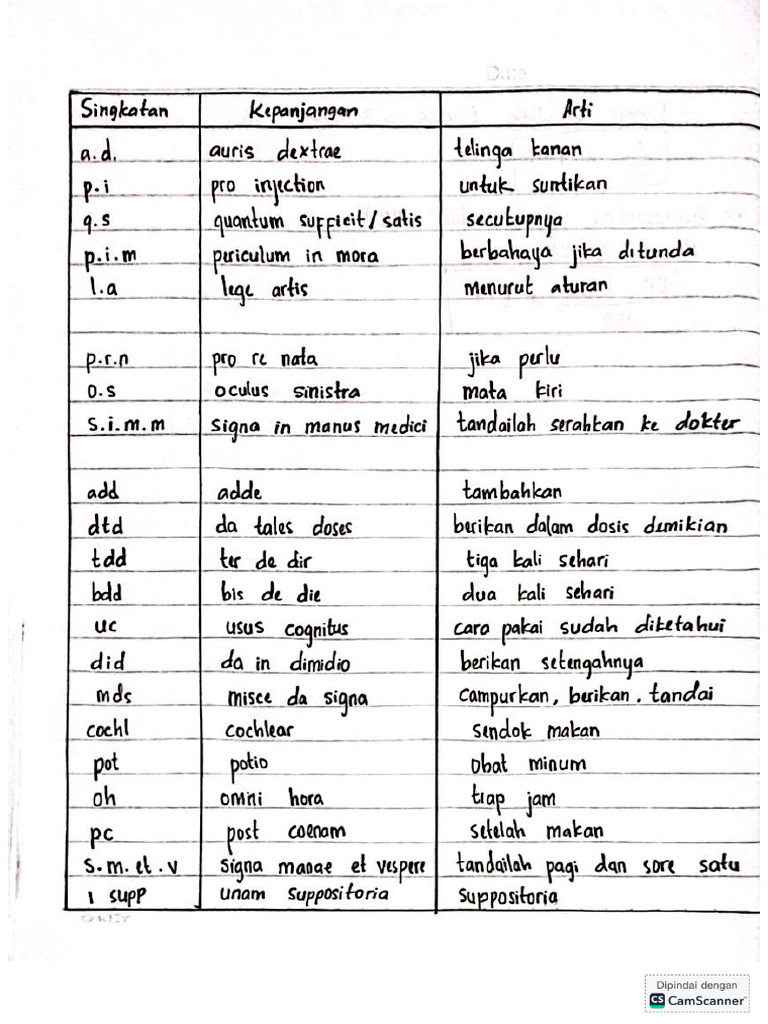 Date
Singkatan Kepanjangan Arti
a.d. auris dextrae telinga kanan
p.i pro injection untuk suntikan
q.s quantum sufficit/satis secukupnya
p.i.m periculum in mora berbahaya jika ditunda
l.a lege artis menurut aturan
p.r.n pro re nata jika perlu
o.s oculus sinistra mata kiri
s.i.m.m signa in manus medici tandailah serahkan ke dokter
add adde tambahkan
dtd da tales doses berikan dalam dosis demikian
tdd ter de dir tiga kali sehari
bdd bis de die dua kali sehari
uc usus cognitus cara pakai sudah diketahui
did da in dimidio berikan setengahnya
mds misce da signa campurkan, berikan. tandai
cochl cochlear sendok makan
pot potio obat minum
oh omni hora tiap jam
pc post coenam setelah makan
s.m.et.v signa manae et vespere tandailah pagi dan sore satu
1 supp unam suppositoria suppositoria
Dipindai dengan
CS CamScanner